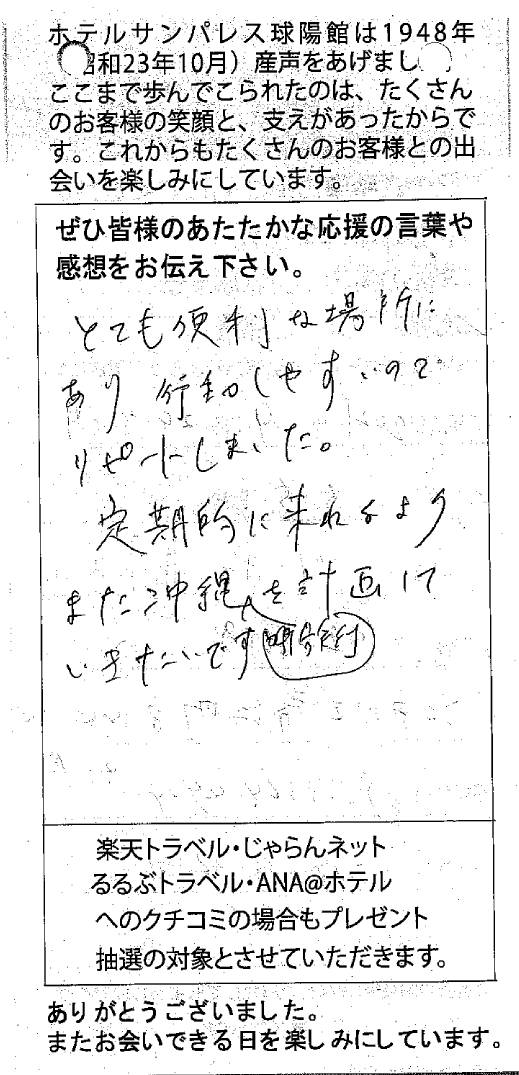 ホテルサンパレス球陽館は1948年
昭和23年10月）産声をあげまし
ここまで歩んでこられたのは、たくさん
のお客様の笑顔と、支えがあったからで
す。これからもたくさんのお客様との出
会いを楽しみにしています。
ぜひ皆様のあたたかな応援の言葉や
感想をお伝え下さい。
とても便利な場所に
あり行動しやすいので
リピートしました。
定期的に来れるよう
また沖縄を計画して
いきたいです
楽天トラベル・じゃらんネット
るるぶトラベル・ANA@ホテル
へのクチコミの場合もプレゼント
抽選の対象とさせていただきます。
ありがとうございました。
またお会いできる日を楽しみにしています。